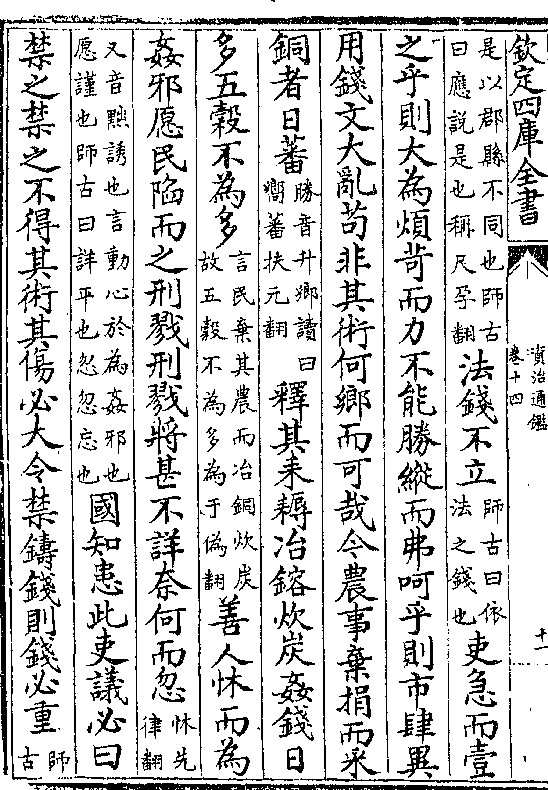 欽定四庫全書
資治通鑑
卷十四
十一
是以郡縣不同也師古曰應說是也稱尺孕翻法錢不立師古曰依法之錢也吏急而壹
之乎則大為煩苛而力不能勝縱而弗呵乎則市肆異
用錢文大亂苟非其術何鄉而可哉今農事棄捐而采
銅者日蕃勝音升鄉讀曰嚮蕃扶元翻釋其耒耨冶鎔炊炭姦錢日
多五穀不為多言民棄其農而冶銅炊炭故五穀不為多為于偽翻善人怵而為
姦邪愿民陷而之刑戮刑戮將甚不詳奈何而忽怵先律翻
又音黜誘也言動心於為姦邪也愿謹也師古曰詳平也忽忽忘也國知患此吏議必曰
禁之禁之不得其術其傷必大令禁鑄錢則錢必重師古